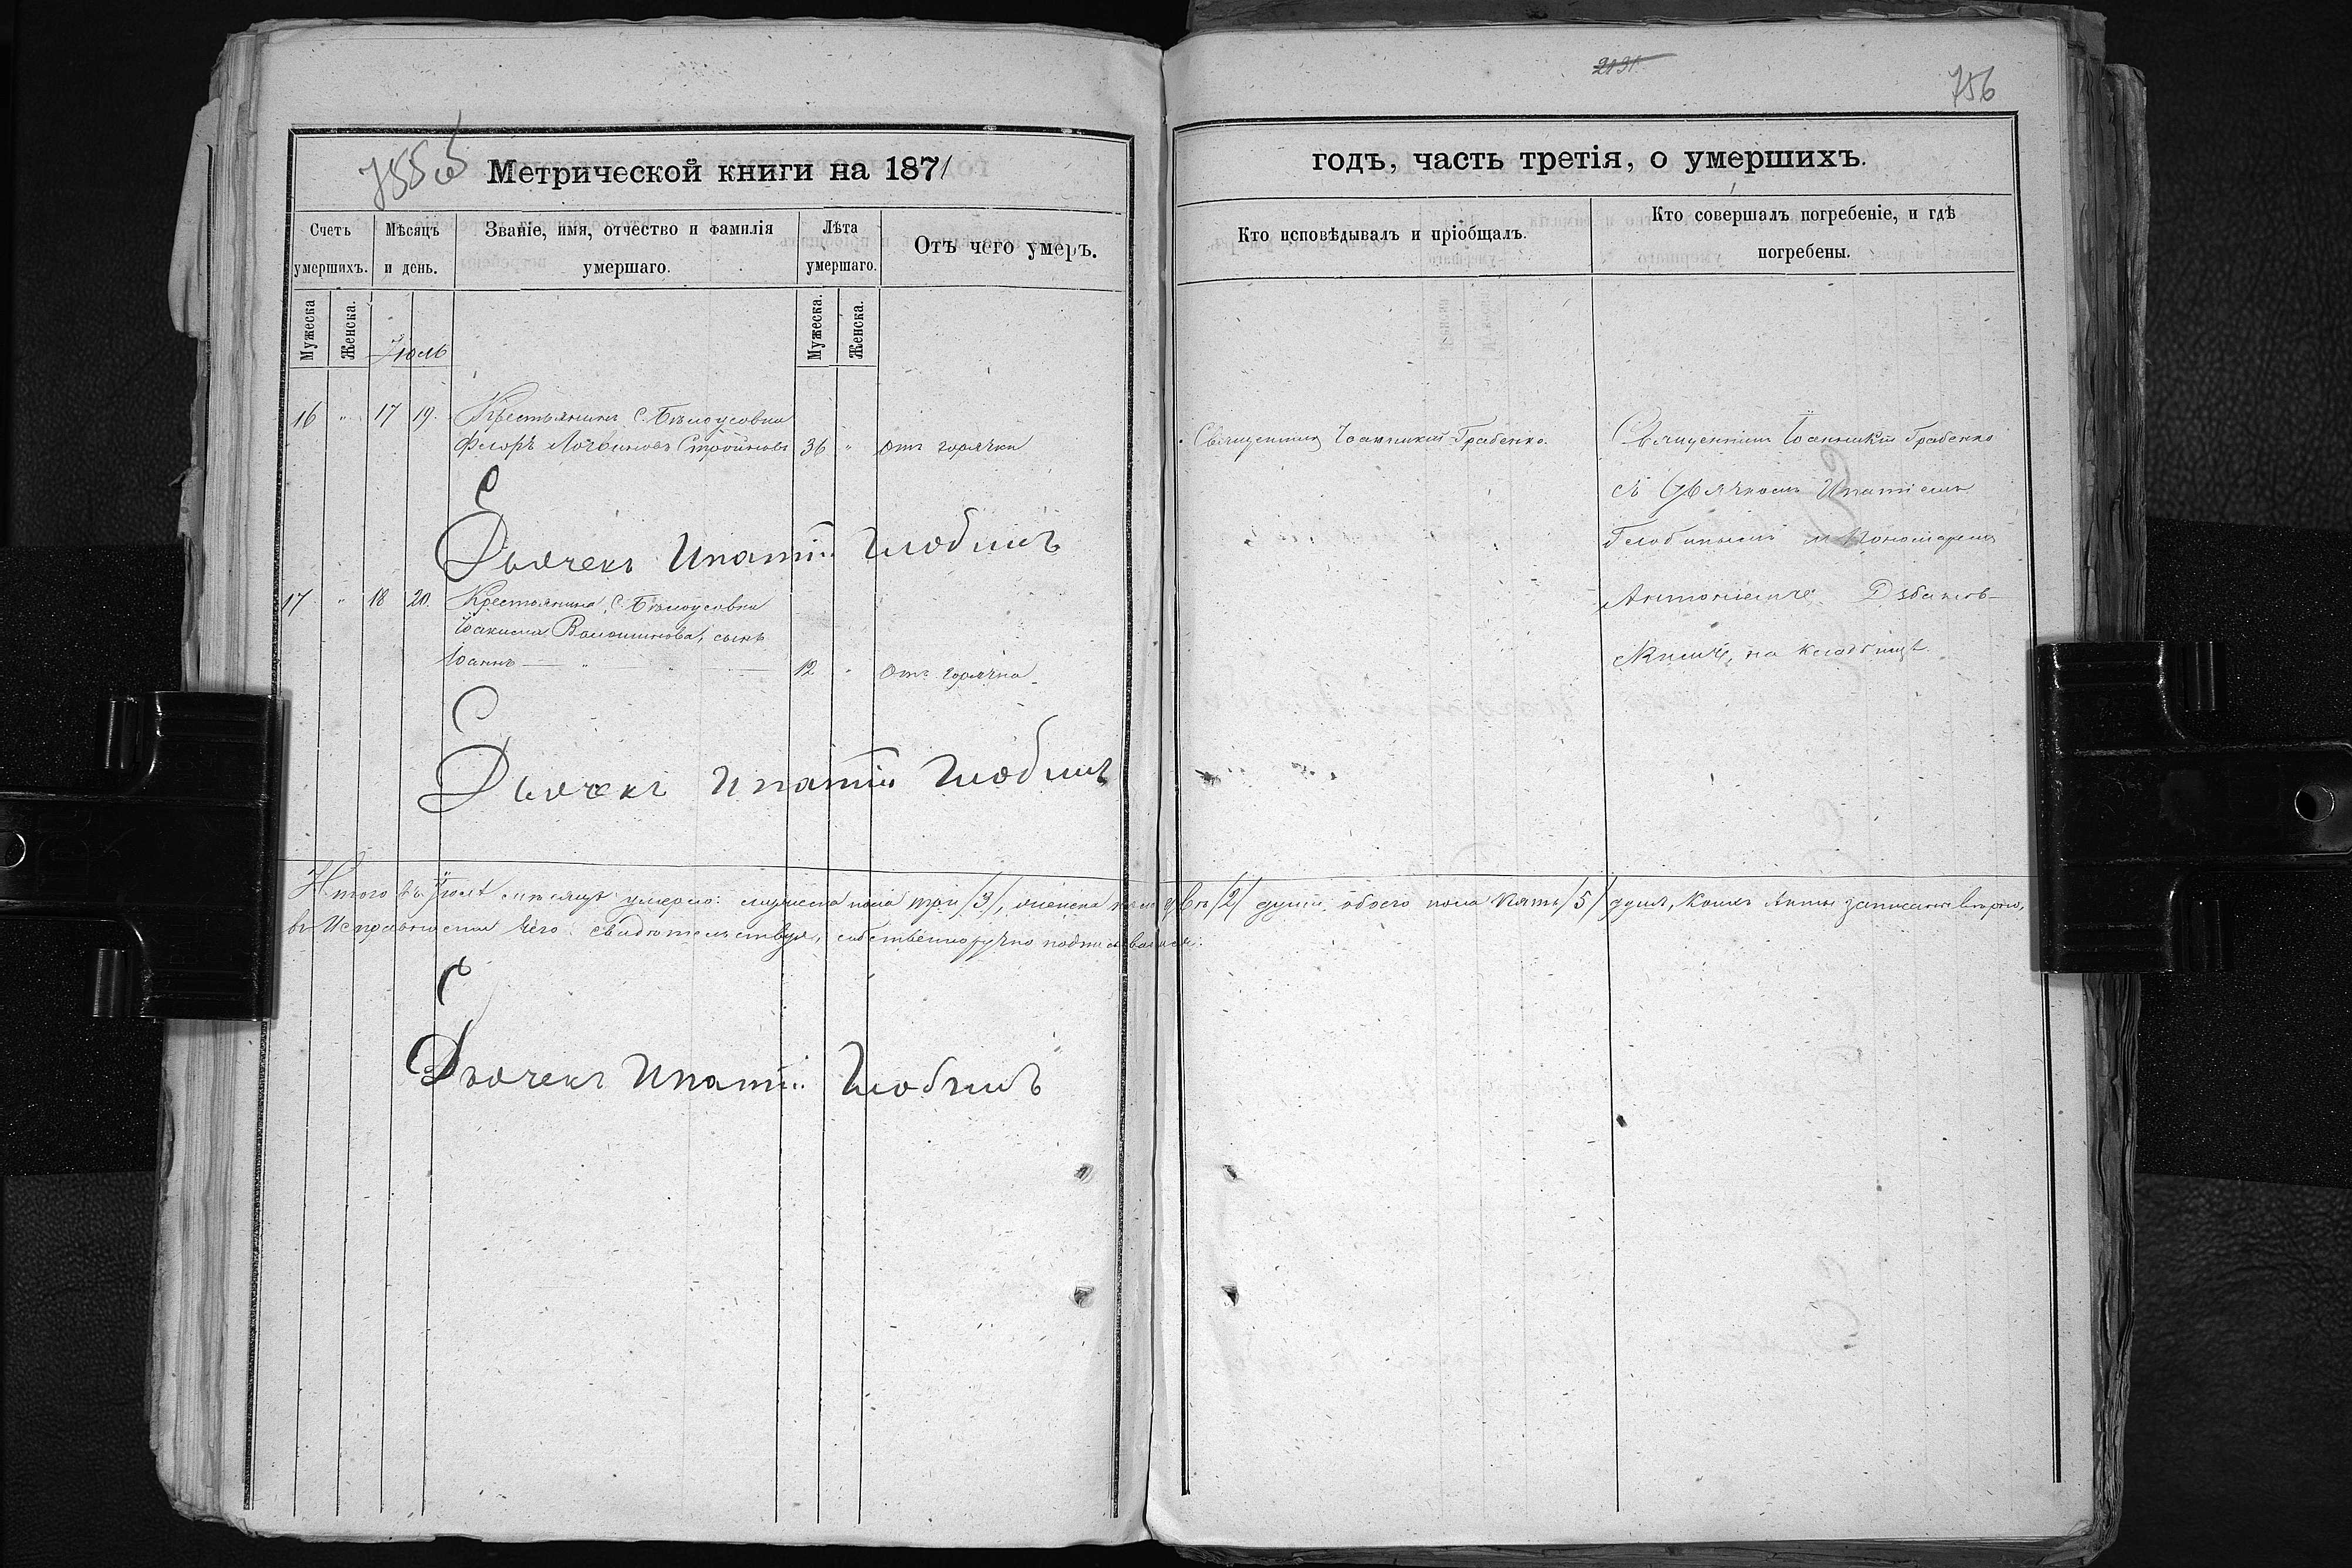 2131
756
755 об
Метрической книги на 1871
годъ, часть третія, о умершихъ.
Счетъ умершихъ.
Мѣсяцъ и день.
Званіе, имя, отчество и фамилія умершаго.
Лѣта умершаго.
Отъ чего умеръ.
Кто исповѣдывалъ и пріобщалъ.
Кто совершалъ погребеніе, и гдѣ погребены.
Мужеска
Женска.
Мужеска.
Женска.
Іюль
16 " 17 19. Крестьянинъ С. Бѣлоусовки
Феодръ Стройновъ 36 " отъ горячки
Священникъ Іоанникій Грабенко.
Священникъ Іоанникій Грабенко
съ Дьячкомъ Ипатіемъ
и Пономаремъ
на кладбищѣ.
Дьячекъ Ипатій
17 " 18 20. Крестьянина, С. Бѣлоусовки
Іоакима Волошинова, сынъ
Іоаннъ 12 " отъ горячки.
Дьячекъ Ипатій
Итого въ Іюлѣ мѣсяцѣ умерло: мужеска пола три /3/, женска пола двѣ /2/ души, обоего пола пять /5/ душъ, коихъ акты записаны вѣрно,
въ исправности чего свидѣтельствуя, собственноручно подписываемся:
Дьячекъ Ипатій